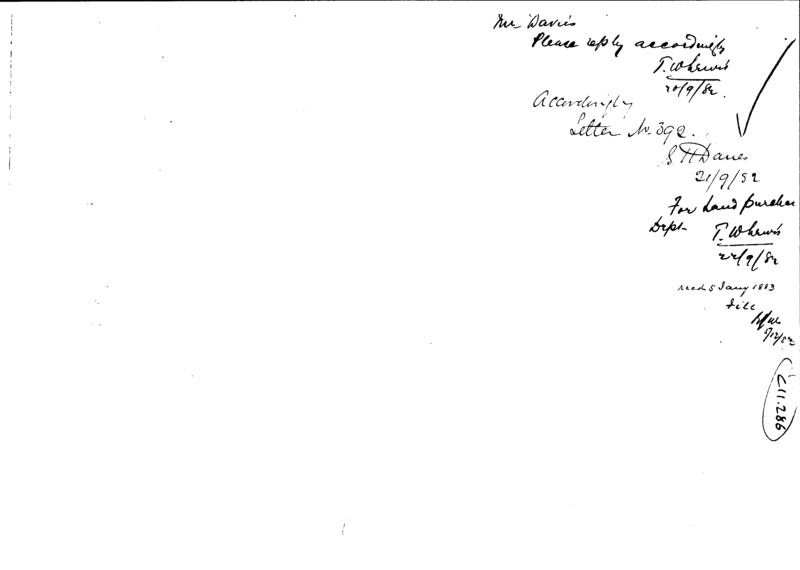 Mr Davies
Please reply accordingly
T. W Lewis
20/9/82.
Accordingly
Letter No. 392.
S H Davies
21/9/82
For Land purchase
Dept. T. W Lewis
22/9/82
recd 5 Jany 1883
File
C11.286